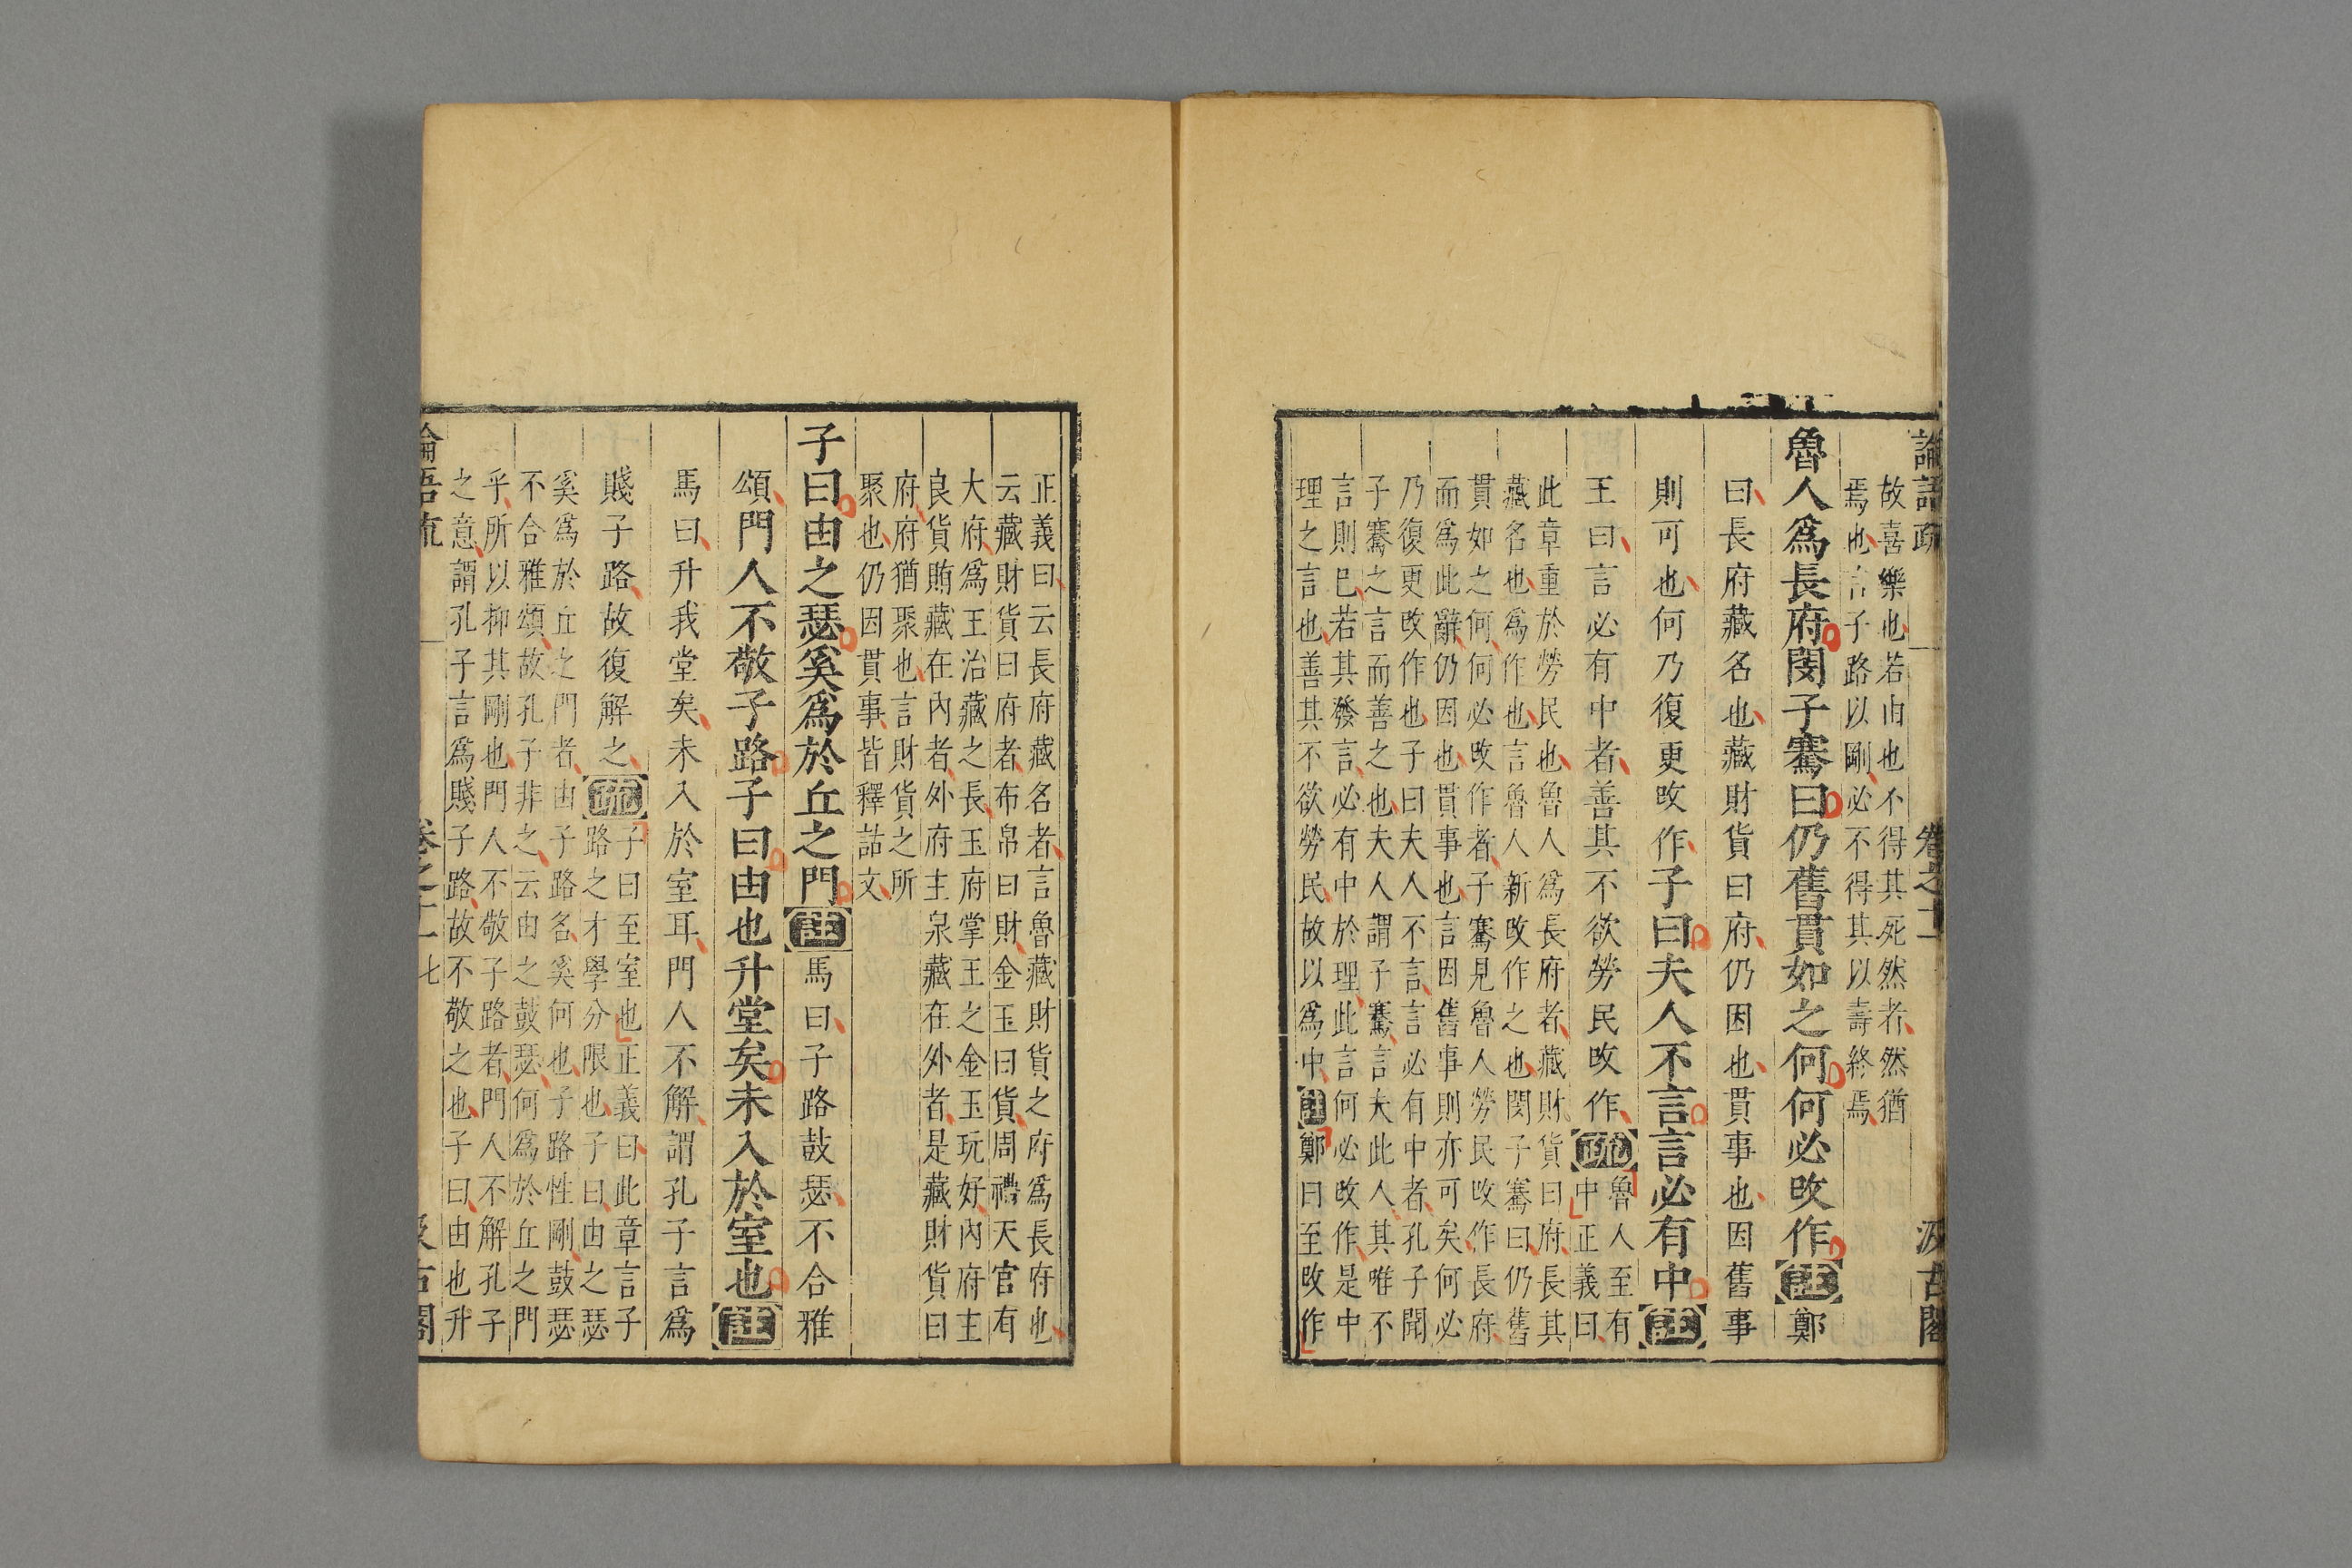 論語疏
卷之十一
汲古閣
故喜樂也若由也不得其死然者然猶
焉也言子路以剛必不得其以壽終焉
魯人爲長府閔子騫曰仍舊貫如之何何必改作註鄭
曰長府藏名也藏財貨曰府仍因也貫事也因舊事
則可也何乃復更改作子曰夫人不言言必有中註
王曰言必有中者善其不欲勞民改作疏魯人至有
中正義曰
此章重於勞民也魯人爲長府者藏財貨曰府長其
藏名也爲作也言魯人新改作之也閔子騫曰仍舊
貫如之何何必改作者子騫見魯人勞民改作長府
而爲此辭仍因也貫事也言因舊事則亦可矣何必
乃復更改作也子曰夫人不言言必有中者孔子聞
子騫之言而善之也夫人謂子騫言夫此人其唯不
言則已若其發言必有中於理此言何必改作是中
理之言也善其不欲勞民故以爲中註鄭曰至改作
正義曰云長府藏名者言魯藏財貨之府爲長府也
云藏財貨曰府者布帛曰財金玉曰貨周禮天官有
大府爲王治藏之長玉府掌王之金玉玩好內府主
良貨賄藏在內者外府主泉藏在外者是藏財貨曰
府府猶聚也言財貨之所
聚也仍因貫事皆釋詁文
子曰由之瑟奚爲於丘之門註馬曰子路鼓瑟不合雅
頌門人不敬子路子曰由也升堂矣未入於室也註
馬曰升我堂矣未入於室耳門人不解謂孔子言爲
賤子路故復解之疏子曰至室也正義曰此章言子
路之才學分限也子曰由之瑟
奚爲於丘之門者由子路名奚何也子路性剛鼓瑟
不合雅頌故孔子非之云由之鼓瑟何爲於丘之門
乎所以抑其剛也門人不敬子路者門人不解孔子
之意謂孔子言爲賤子路故不敬之也子曰由也升
論語疏
卷之十一
七
汲古閣